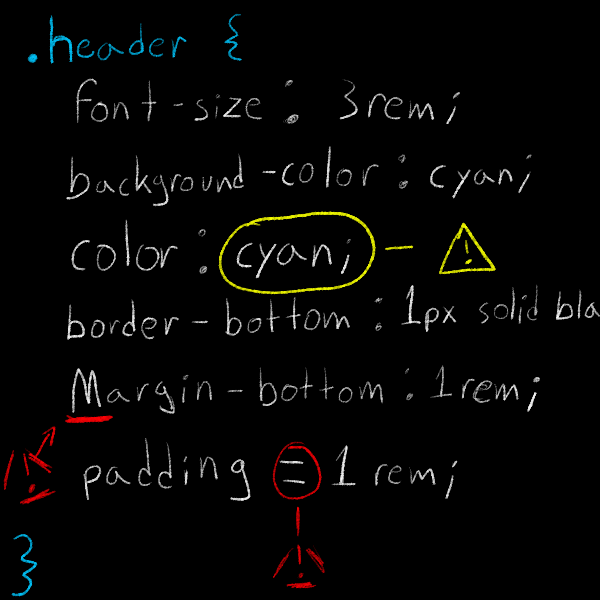 .header {
font-size: 3rem;
background-color: cyan;
color: cyan; - !
border-bottom: 1px solid bla
Margin-bottom: 1rem;
padding = 1rem;
}